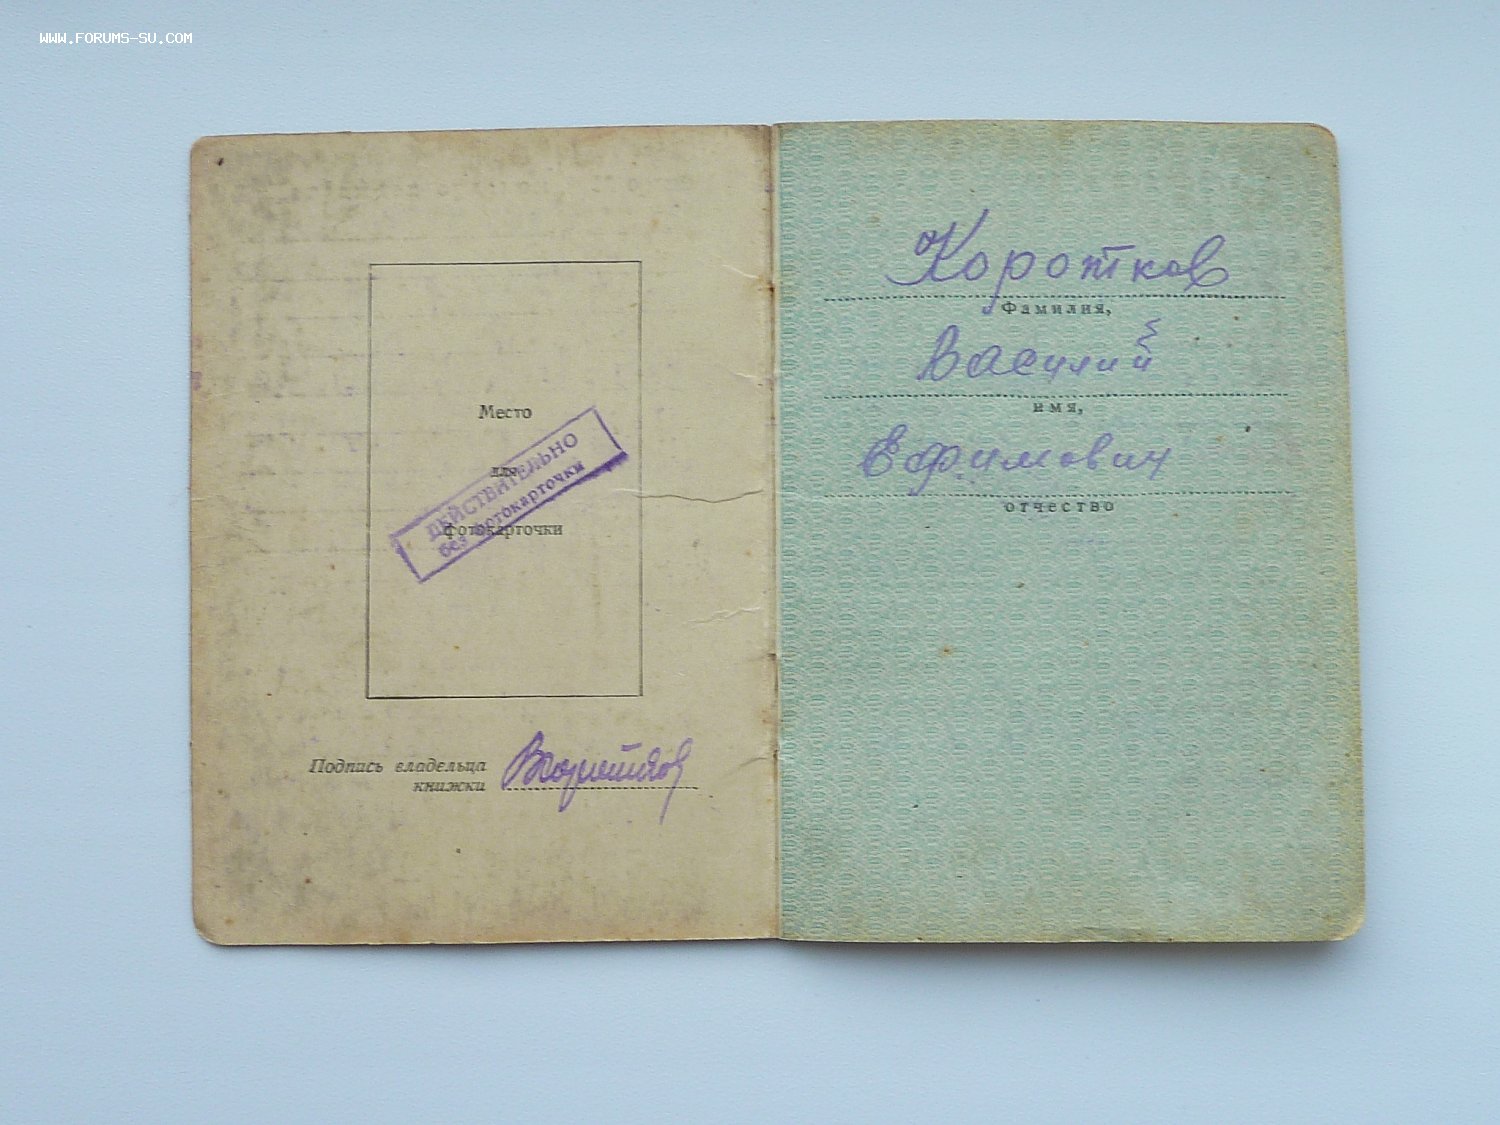 WWW.FORUMS-SU.COM
Место
для
фотокарточки
ДЕЙСТВИТЕЛЬНО
без фотокарточки
Подпись владельца
книжки
Коротков
Фамилия,
Василий
имя,
Ефимович
отчество